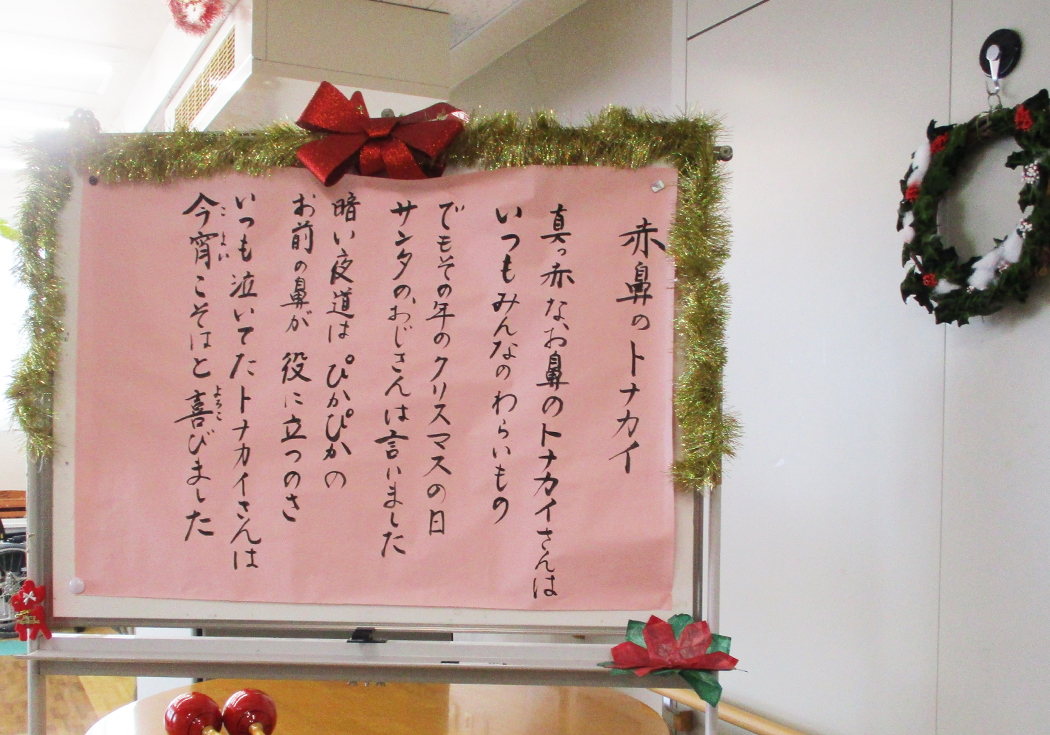 赤鼻のトナカイ
真っ赤なお鼻のトナカイさんは
いつもみんなのわらいもの
でもその年のクリスマスの日
サンタのおじさんは言いました
暗い夜道はぴかぴかの
お前の鼻が役に立つのさ
いつも泣いてたトナカイさんは
今宵こそはと喜びました
こよい
よろこ